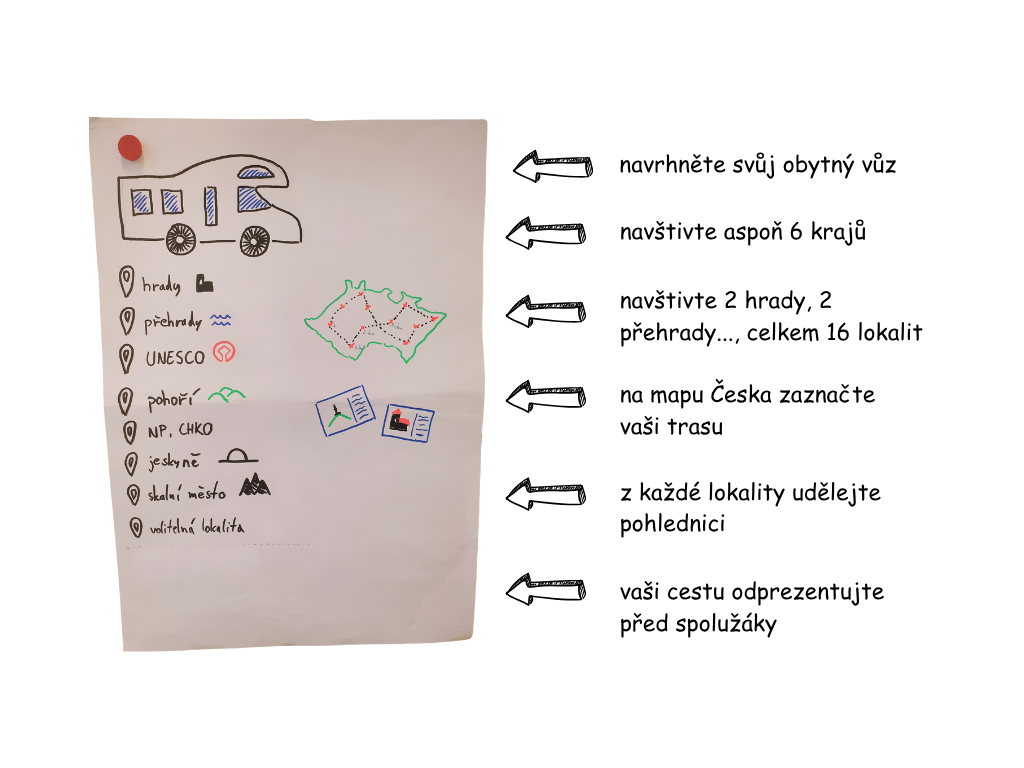 hrady
přehrady
UNESCO
pohoří
NP, CHKO
jeskyně
skalní město
volitelná lokalita
navrhněte svůj obytný vůz
navštivte aspoň 6 krajů
navštivte 2 hrady, 2
přehrady..., celkem 16 lokalit
na mapu Česka zaznačte
vaši trasu
z každé lokality udělejte
pohlednici
vaši cestu odprezentujte
před spolužáky